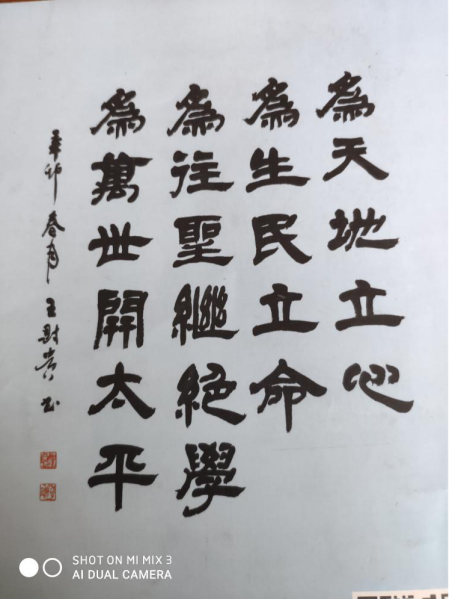 為天地立心
為生民立命
為往聖繼絕學
為萬世開太平
辛卯春月王財貴书
SHOT ON MI MIX 3
AI DUAL CAMERA